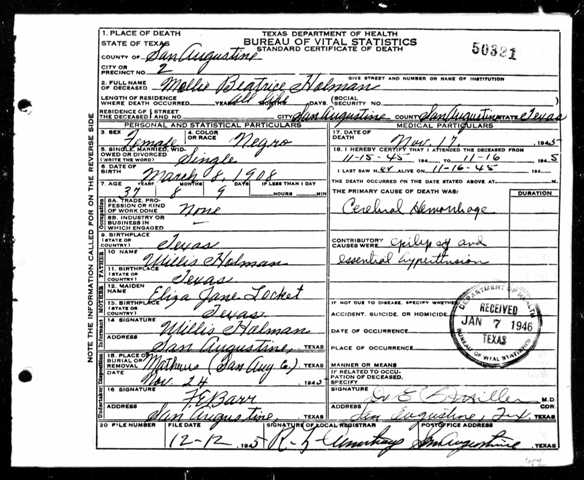 TEXAS DEPARTMENT OF HEALTH
BUREAU OF VITAL STATISTICS
STANDARD CERTIFICATE OF DEATH
50321
1. PLACE OF DEATH
STATE OF TEXAS
COUNTY OF San Augustine
CITY OR PRECINCT NO. 2
GIVE STREET AND NUMBER OR NAME OF INSTITUTION
2. FULL NAME OF DECEASED Mollie Beatrice Holman
LENGTH OF RESIDENCE WHERE DEATH OCCURRED YEARS MONTHS DAYS (SOCIAL SECURITY NO.
RESIDENCE OF THE DECEASED (STREET NO. CITY San Augustine COUNTY San Augustine STATE Texas
PERSONAL AND STATISTICAL PARTICULARS
3. SEX Female 4. COLOR OR RACE Negro
5. SINGLE, MARRIED, WIDOWED OR DIVORCED (WRITE THE WORD) Single
6. DATE OF BIRTH March 8, 1908
7. AGE YEARS MONTHS DAYS IF LESS THAN 1 DAY
37 8 9 HOURS MIN
8A. TRADE, PROFESSION OR KIND OF WORK DONE None
8B. INDUSTRY OR BUSINESS IN WHICH ENGAGED -
9. BIRTHPLACE (STATE OR COUNTRY) Texas
10. NAME Willis Holman
11. BIRTHPLACE (STATE OR COUNTRY) Texas
12. MAIDEN NAME Eliza Jane Locket
13. BIRTHPLACE (STATE OR COUNTRY) Texas
14. SIGNATURE Willis Holman
ADDRESS San Augustine, TEXAS
15. PLACE OF BURIAL OR REMOVAL Mathews (San Aug Co.) TEXAS
DATE Nov. 24 1945
16. SIGNATURE F.E. Barr
ADDRESS San Augustine, TEXAS
MEDICAL PARTICULARS
17. DATE OF DEATH Nov. 17 1945
18. I HEREBY CERTIFY THAT I ATTENDED THE DECEASED FROM
11-15-45 194 TO 11-16 1945
I LAST SAW H er ALIVE ON 11-16-45 194
THE DEATH OCCURRED ON THE DATE STATED ABOVE AT M.
THE PRIMARY CAUSE OF DEATH WAS: DURATION
Cerebral Hemorrhage
CONTRIBUTORY CAUSES WERE epilepsy and
essential hypertension
IF NOT DUE TO DISEASE, SPECIFY WHETHER:
ACCIDENT, SUICIDE, OR HOMICIDE
DATE OF OCCURRENCE
PLACE OF OCCURRENCE
MANNER OR MEANS
IF RELATED TO OCCUPATION OF DECEASED, SPECIFY
SIGNATURE M.D.
ADDRESS San Augustine, Tex. TEXAS
DEPARTMENT OF HEALTH
RECEIVED
JAN 7 1946
TEXAS
BUREAU OF VITAL STATISTICS
20 FILE NUMBER FILE DATE SIGNATURE OF LOCAL REGISTRAR POST OFFICE ADDRESS
12-12 1945 San Augustine, TEXAS
NOTE THE INFORMATION CALLED FOR ON THE REVERSE SIDE